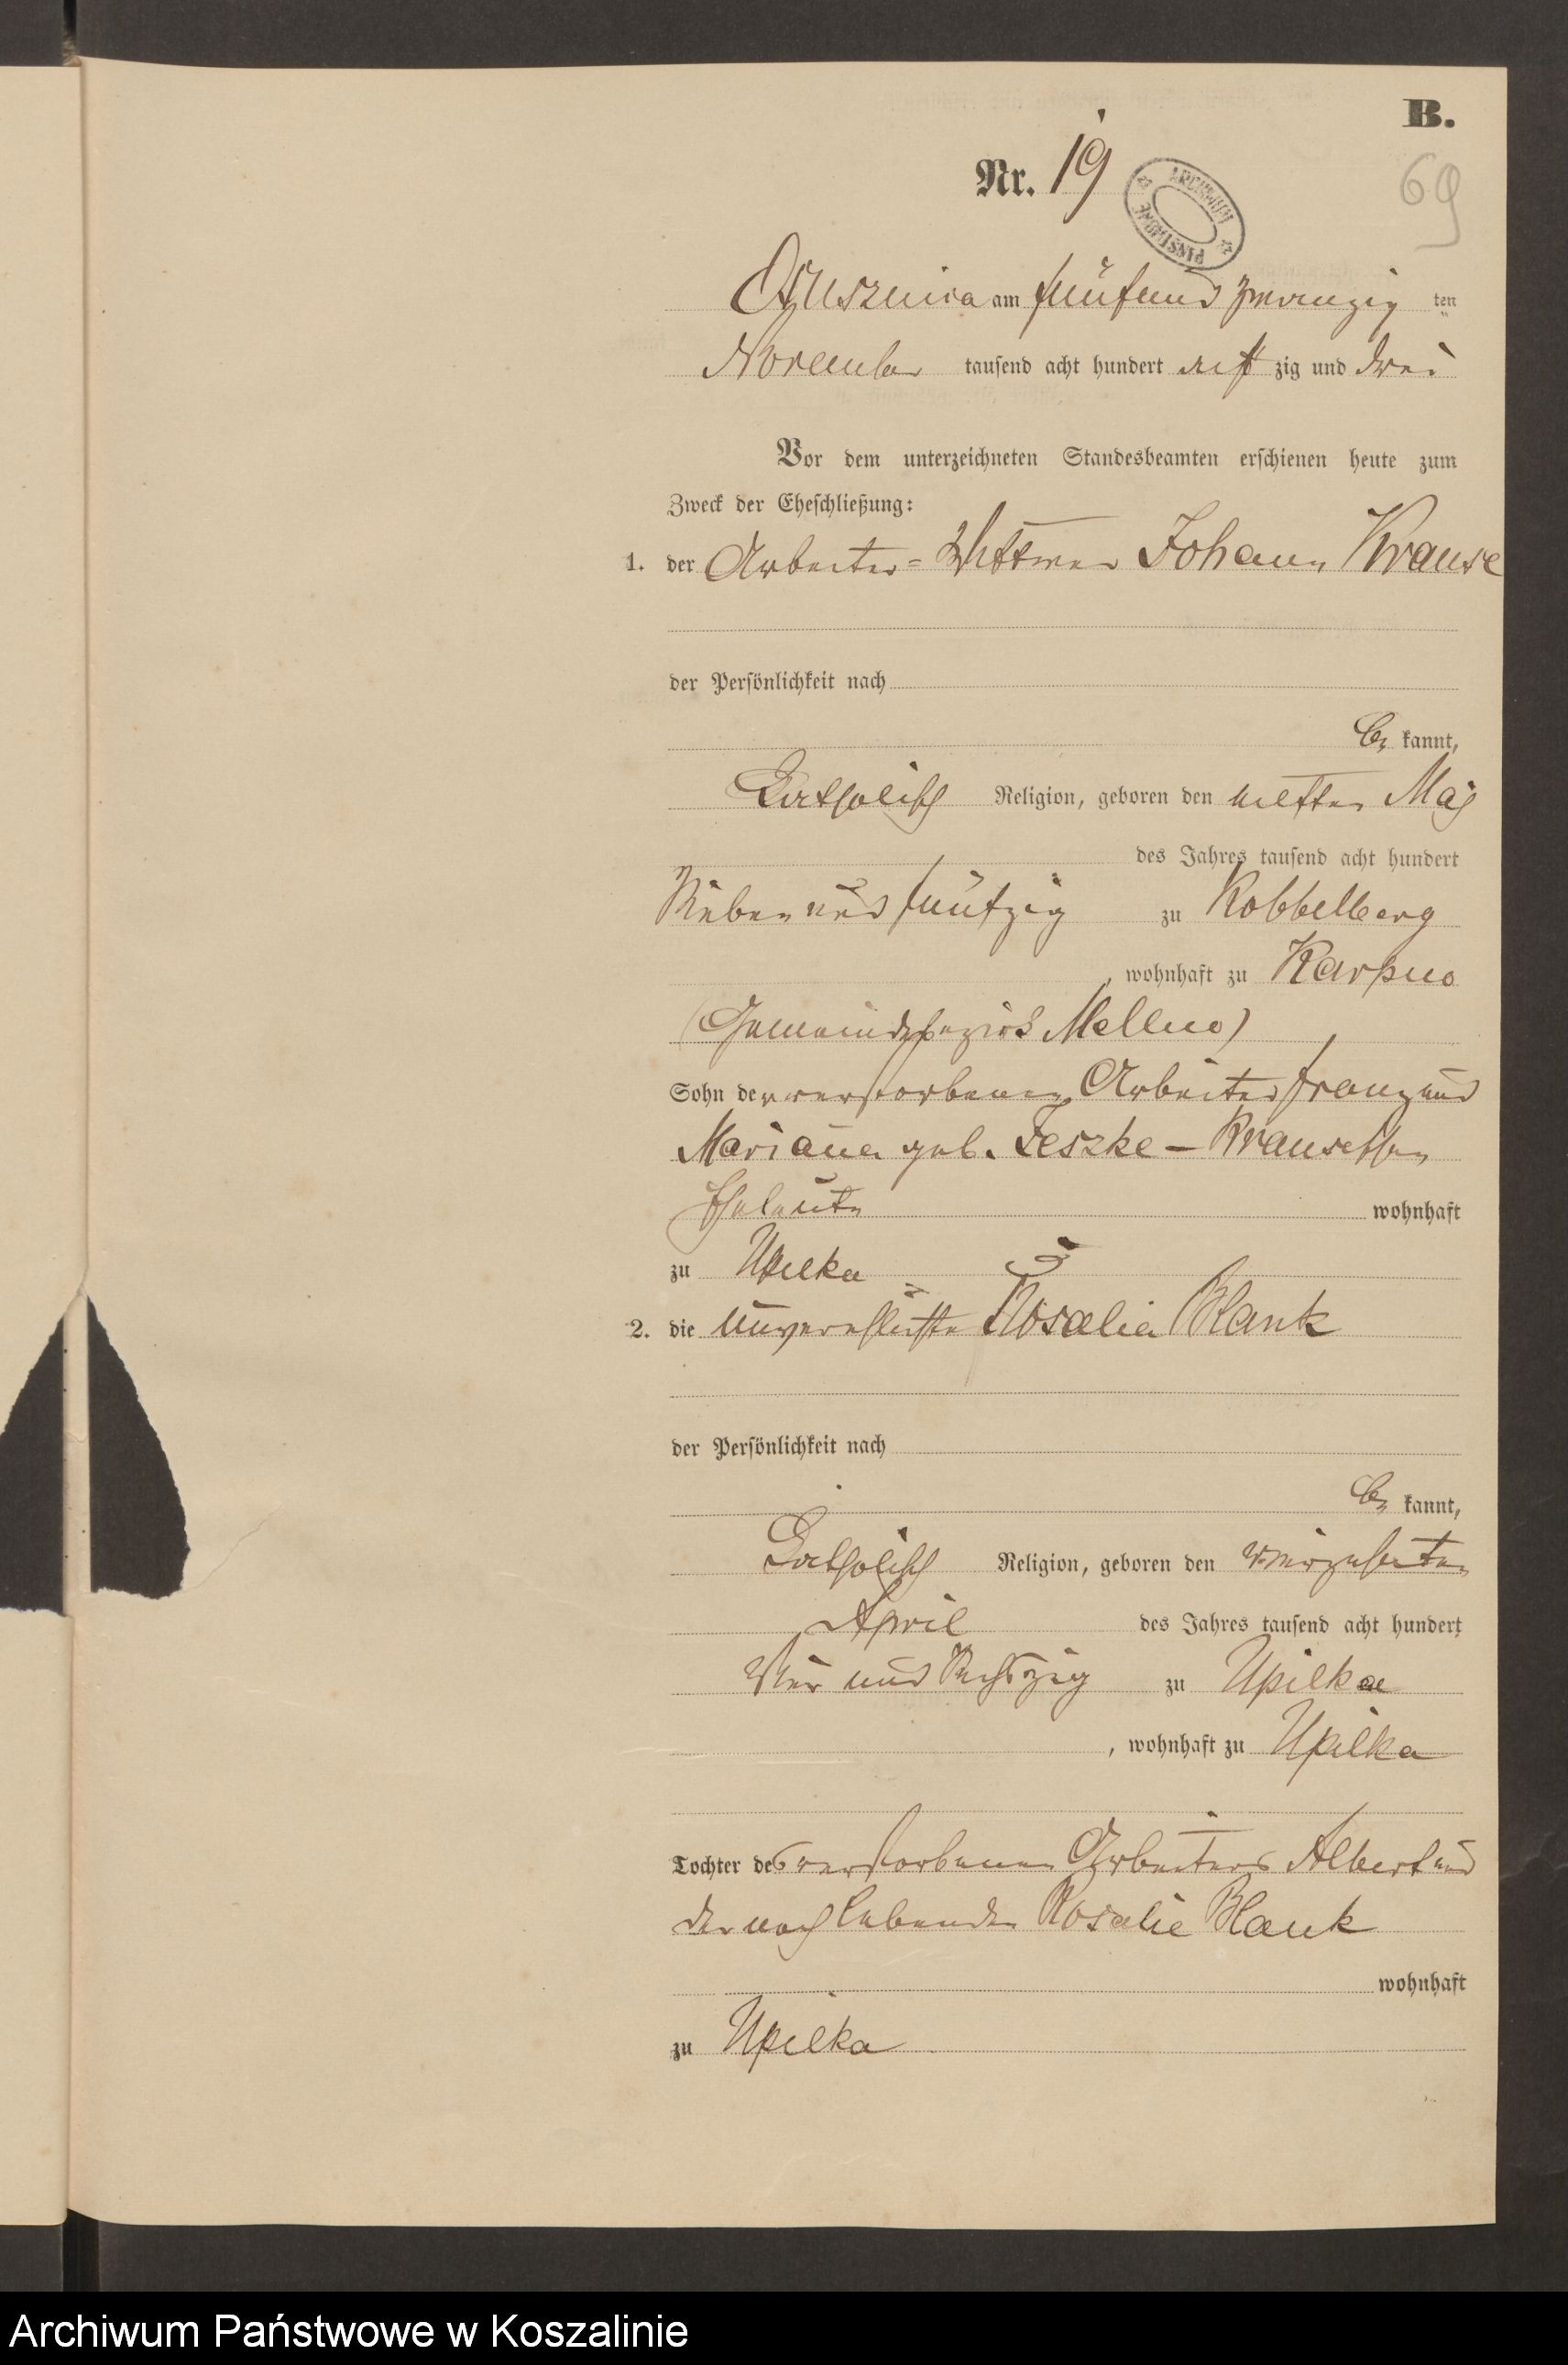 B.
Nr. 19
69
ARCHIWUM PAŃSTWOWE
am fünfund zwanzig ten
November tausend acht hundert acht zig und drei
Vor dem unterzeichneten Standesbeamten erschienen heute zum
Zweck der Eheschließung:
1. der Arbeiter = Wittwer Johann Krause
der Persönlichkeit nach
be kannt,
Katholisch Religion, geboren den elften Mai
des Jahres tausend acht hundert
Sieben und fünfzig zu Robbelberg
, wohnhaft zu Karpno
(Gemeindebezirk Mellno)
Sohn der verstorbenen Arbeiter Franz und
Mariana geb. Jeszke - Krauseschen
Eheleute wohnhaft
zu Upilka
2. die unverehlichte Rosalia Blank
der Persönlichkeit nach
be kannt,
Katholisch Religion, geboren den vierzehnten
April des Jahres tausend acht hundert
Vier und Sechszig zu Upilka
, wohnhaft zu Upilka
Tochter des verstorbenen Arbeiters Albert und
der noch lebenden Rosalie Blank
wohnhaft
zu Upilka
Archiwum Państwowe w Koszalinie